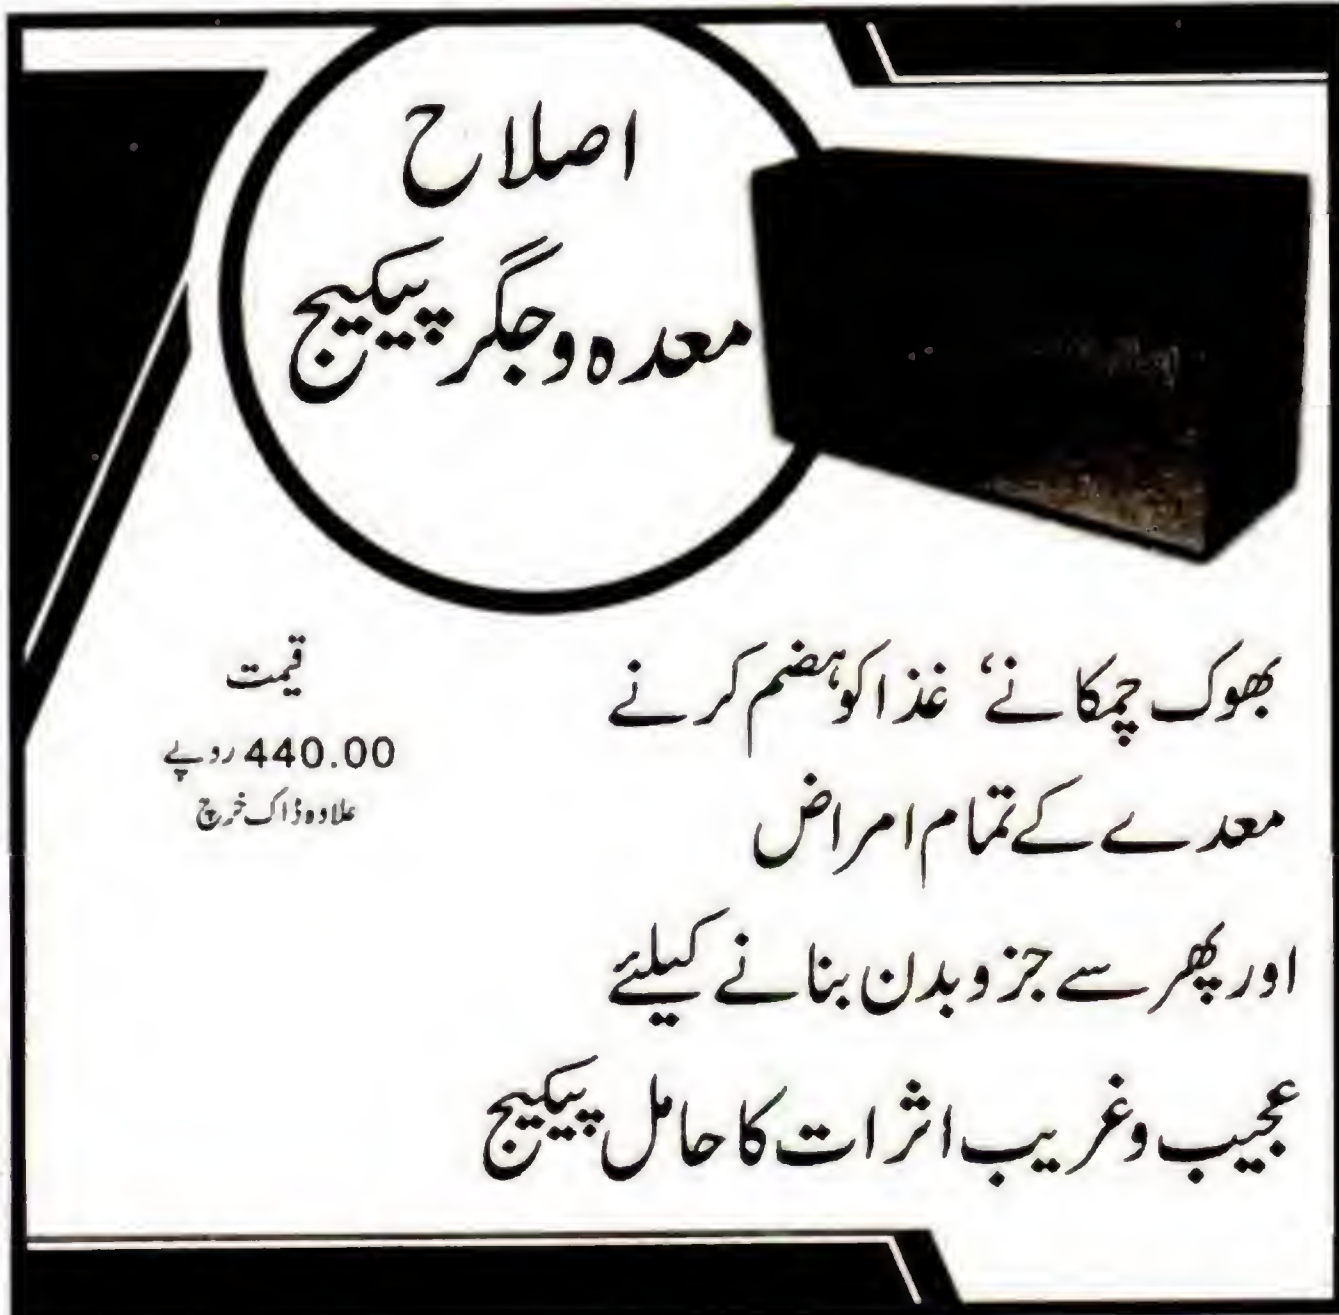 اصلاح
معدہ و جگر پیکیج
بھوک چمکانے‘ غذا کو ہضم کرنے
معدے کے تمام امراض
اور پھر سے جزو بدن بنانے کیلئے
عجیب و غریب اثرات کا حامل پیکیج
قیمت
440.00 روپے
علاوہ ڈاک خرچ